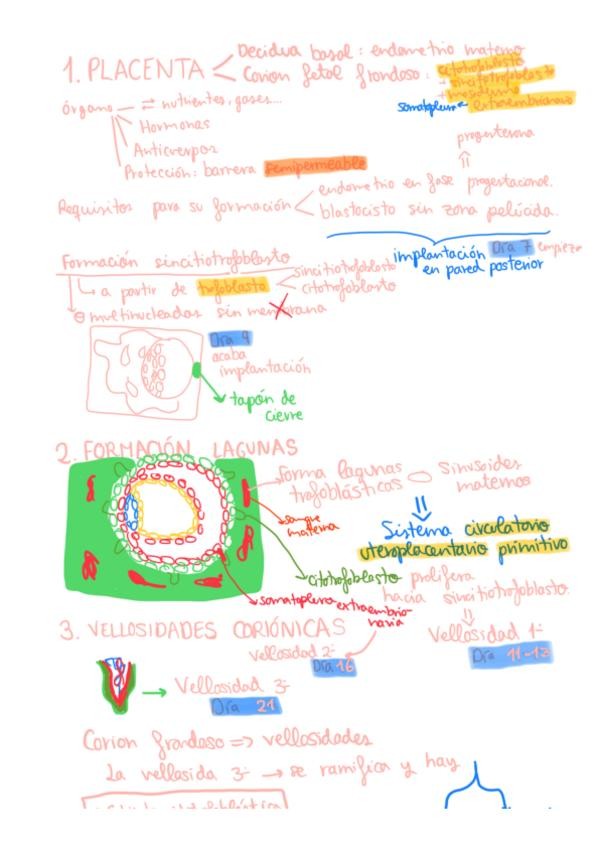 1. PLACENTA
Decidua basal: endometrio materno
Corion fetal frondoso: citotrofoblasto
+ sincitiotrofoblasto
+ mesodermo
somatopleura extraembrionario
órgano ⇄ nutrientes, gases...
Hormonas
Anticuerpos
Protección: barrera semipermeable
progesterona
Requisitos para su formación
endometrio en fase progestacional.
blastocisto sin zona pelúcida.
implantación Día 7 empieza
en pared posterior
Formación sincitiotrofoblasto
a partir de trofoblasto
sincitiotrofoblasto
citotrofoblasto
multinucleadas sin membrana
Día 9
acaba
implantación
tapón de
cierre
2. FORMACIÓN LAGUNAS
Forma lagunas
trofoblásticas
Sinusoides
maternos
sangre
materna
Sistema circulatorio
uteroplacentario primitivo
citotrofoblasto prolifera
hacia sincitiotrofoblasto.
somatopleura extraembrio-
naria
3. VELLOSIDADES CORIÓNICAS
Vellosidad 1ª
Día 11-13
vellosidad 2ª
Día 16
Vellosidad 3ª
Día 21
Corion frondoso => vellosidades
La vellosida 3ª → se ramifica y hay